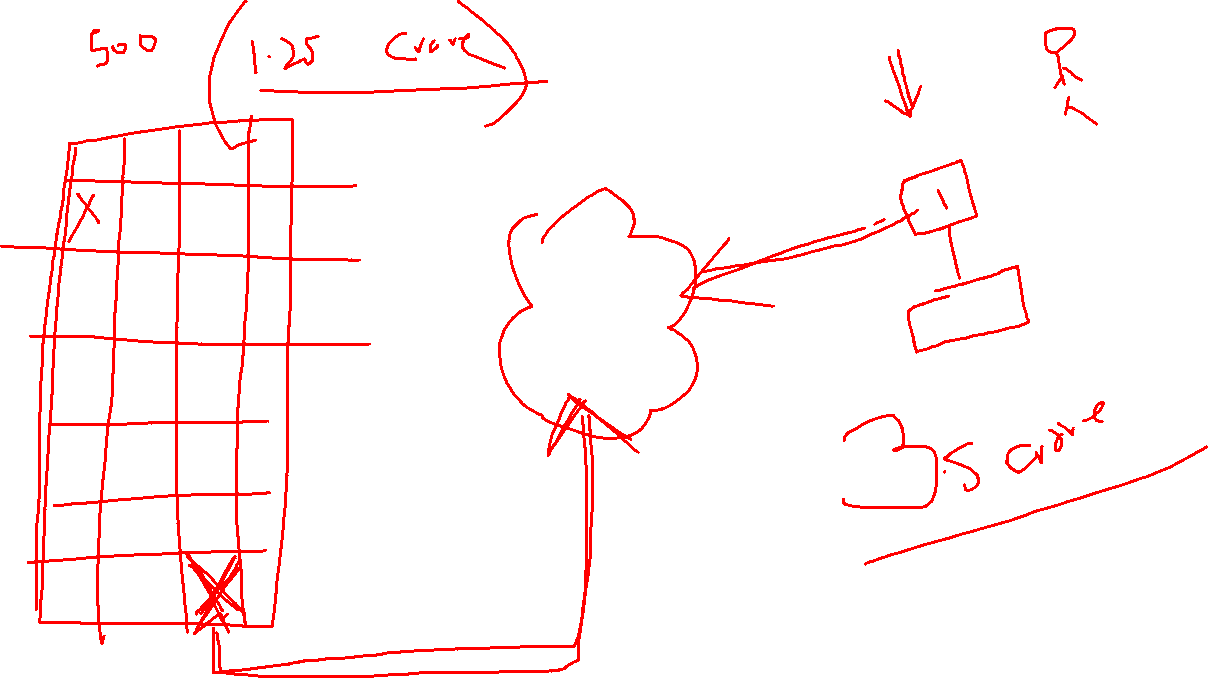 500 (1.25 Crore)
3.5 crore